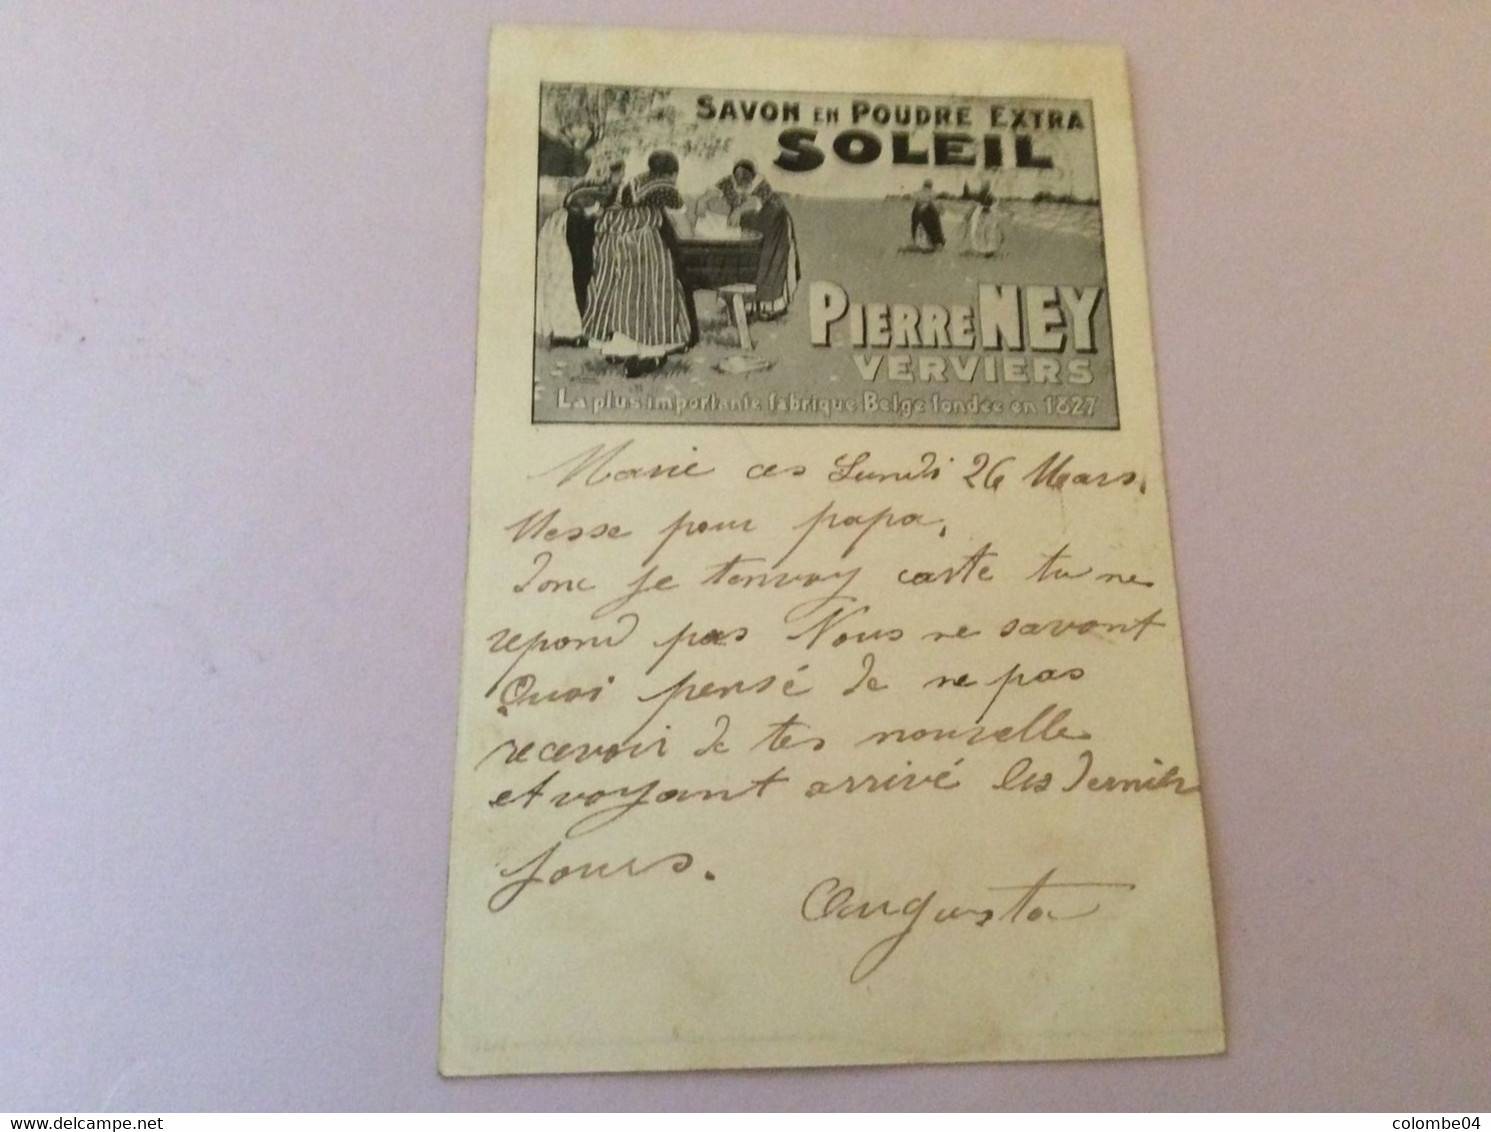 SAVON EN POUDRE EXTRA
SOLEIL
PIERRE NEY
VERVIERS
La plus importante fabrique Belge fondée en 1827
Marie ces Lundi 26 Mars.
Messe pour papa,
donc je tenvoy carte tu ne
repond pas Nous ne savont
Quoi pensé de ne pas
recevoir de tes nouvelle
et voyant arrivé les dernier
jours.
Augusta
colombe04